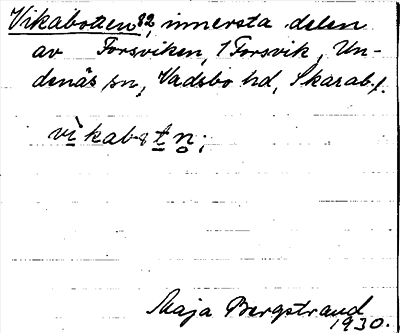 Vikabotten 32, innersta delen
av Forsviken, 1 Forsvik, Un-
denäs sn, Vadsbo hd, Skarab. l.
vikabotn;
Maja Bergstrand
1930.